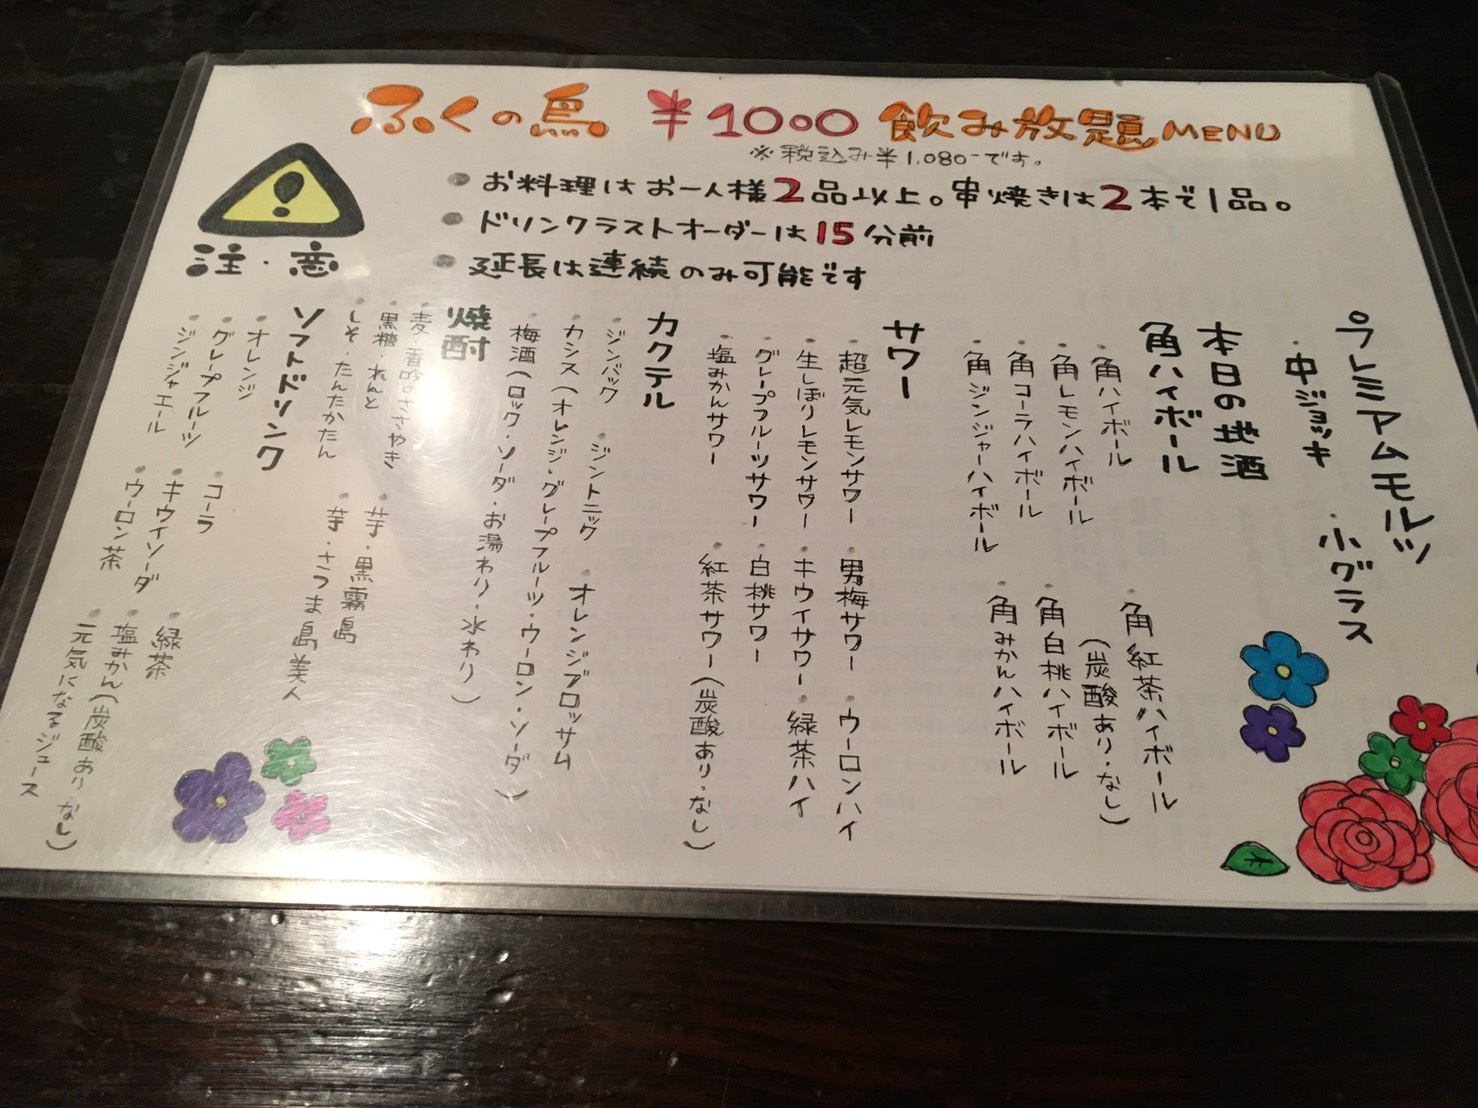 ふくの鳥 ¥1000 飲み放題MENU
※税込み¥1,080-です。
注・意
・お料理はお一人様2品以上。串焼きは2本で1品。
・ドリンクラストオーダーは15分前
・延長は連続のみ可能です
プレミアムモルツ
・中ジョッキ ・小グラス
本日の地酒
角ハイボール
・角ハイボール ・角紅茶ハイボール
(炭酸あり・なし)
・角レモンハイボール ・角白桃ハイボール
・角コーラハイボール ・角みかんハイボール
・角ジンジャーハイボール
サワー
・超元気レモンサワー ・男梅サワー ・ウーロンハイ
・生しぼりレモンサワー ・キウイサワー ・緑茶ハイ
・グレープフルーツサワー ・白桃サワー
・塩みかんサワー ・紅茶サワー(炭酸あり・なし)
カクテル
・ジンバック ・ジントニック ・オレンジブロッサム
・カシス(オレンジ・グレープフルーツ・ウーロン・ソーダ)
・梅酒(ロック・ソーダ・お湯わり・水わり)
焼酎
・麦・香吟のささやき ・芋・黒霧島
・黒糖・れんと ・芋・さつま島美人
・しそ・たんたかたん
ソフトドリンク
・オレンジ ・コーラ ・緑茶
・グレープフルーツ ・キウイソーダ ・塩みかん(炭酸あり・なし)
・ジンジャエール ・ウーロン茶 ・元気になるジュース